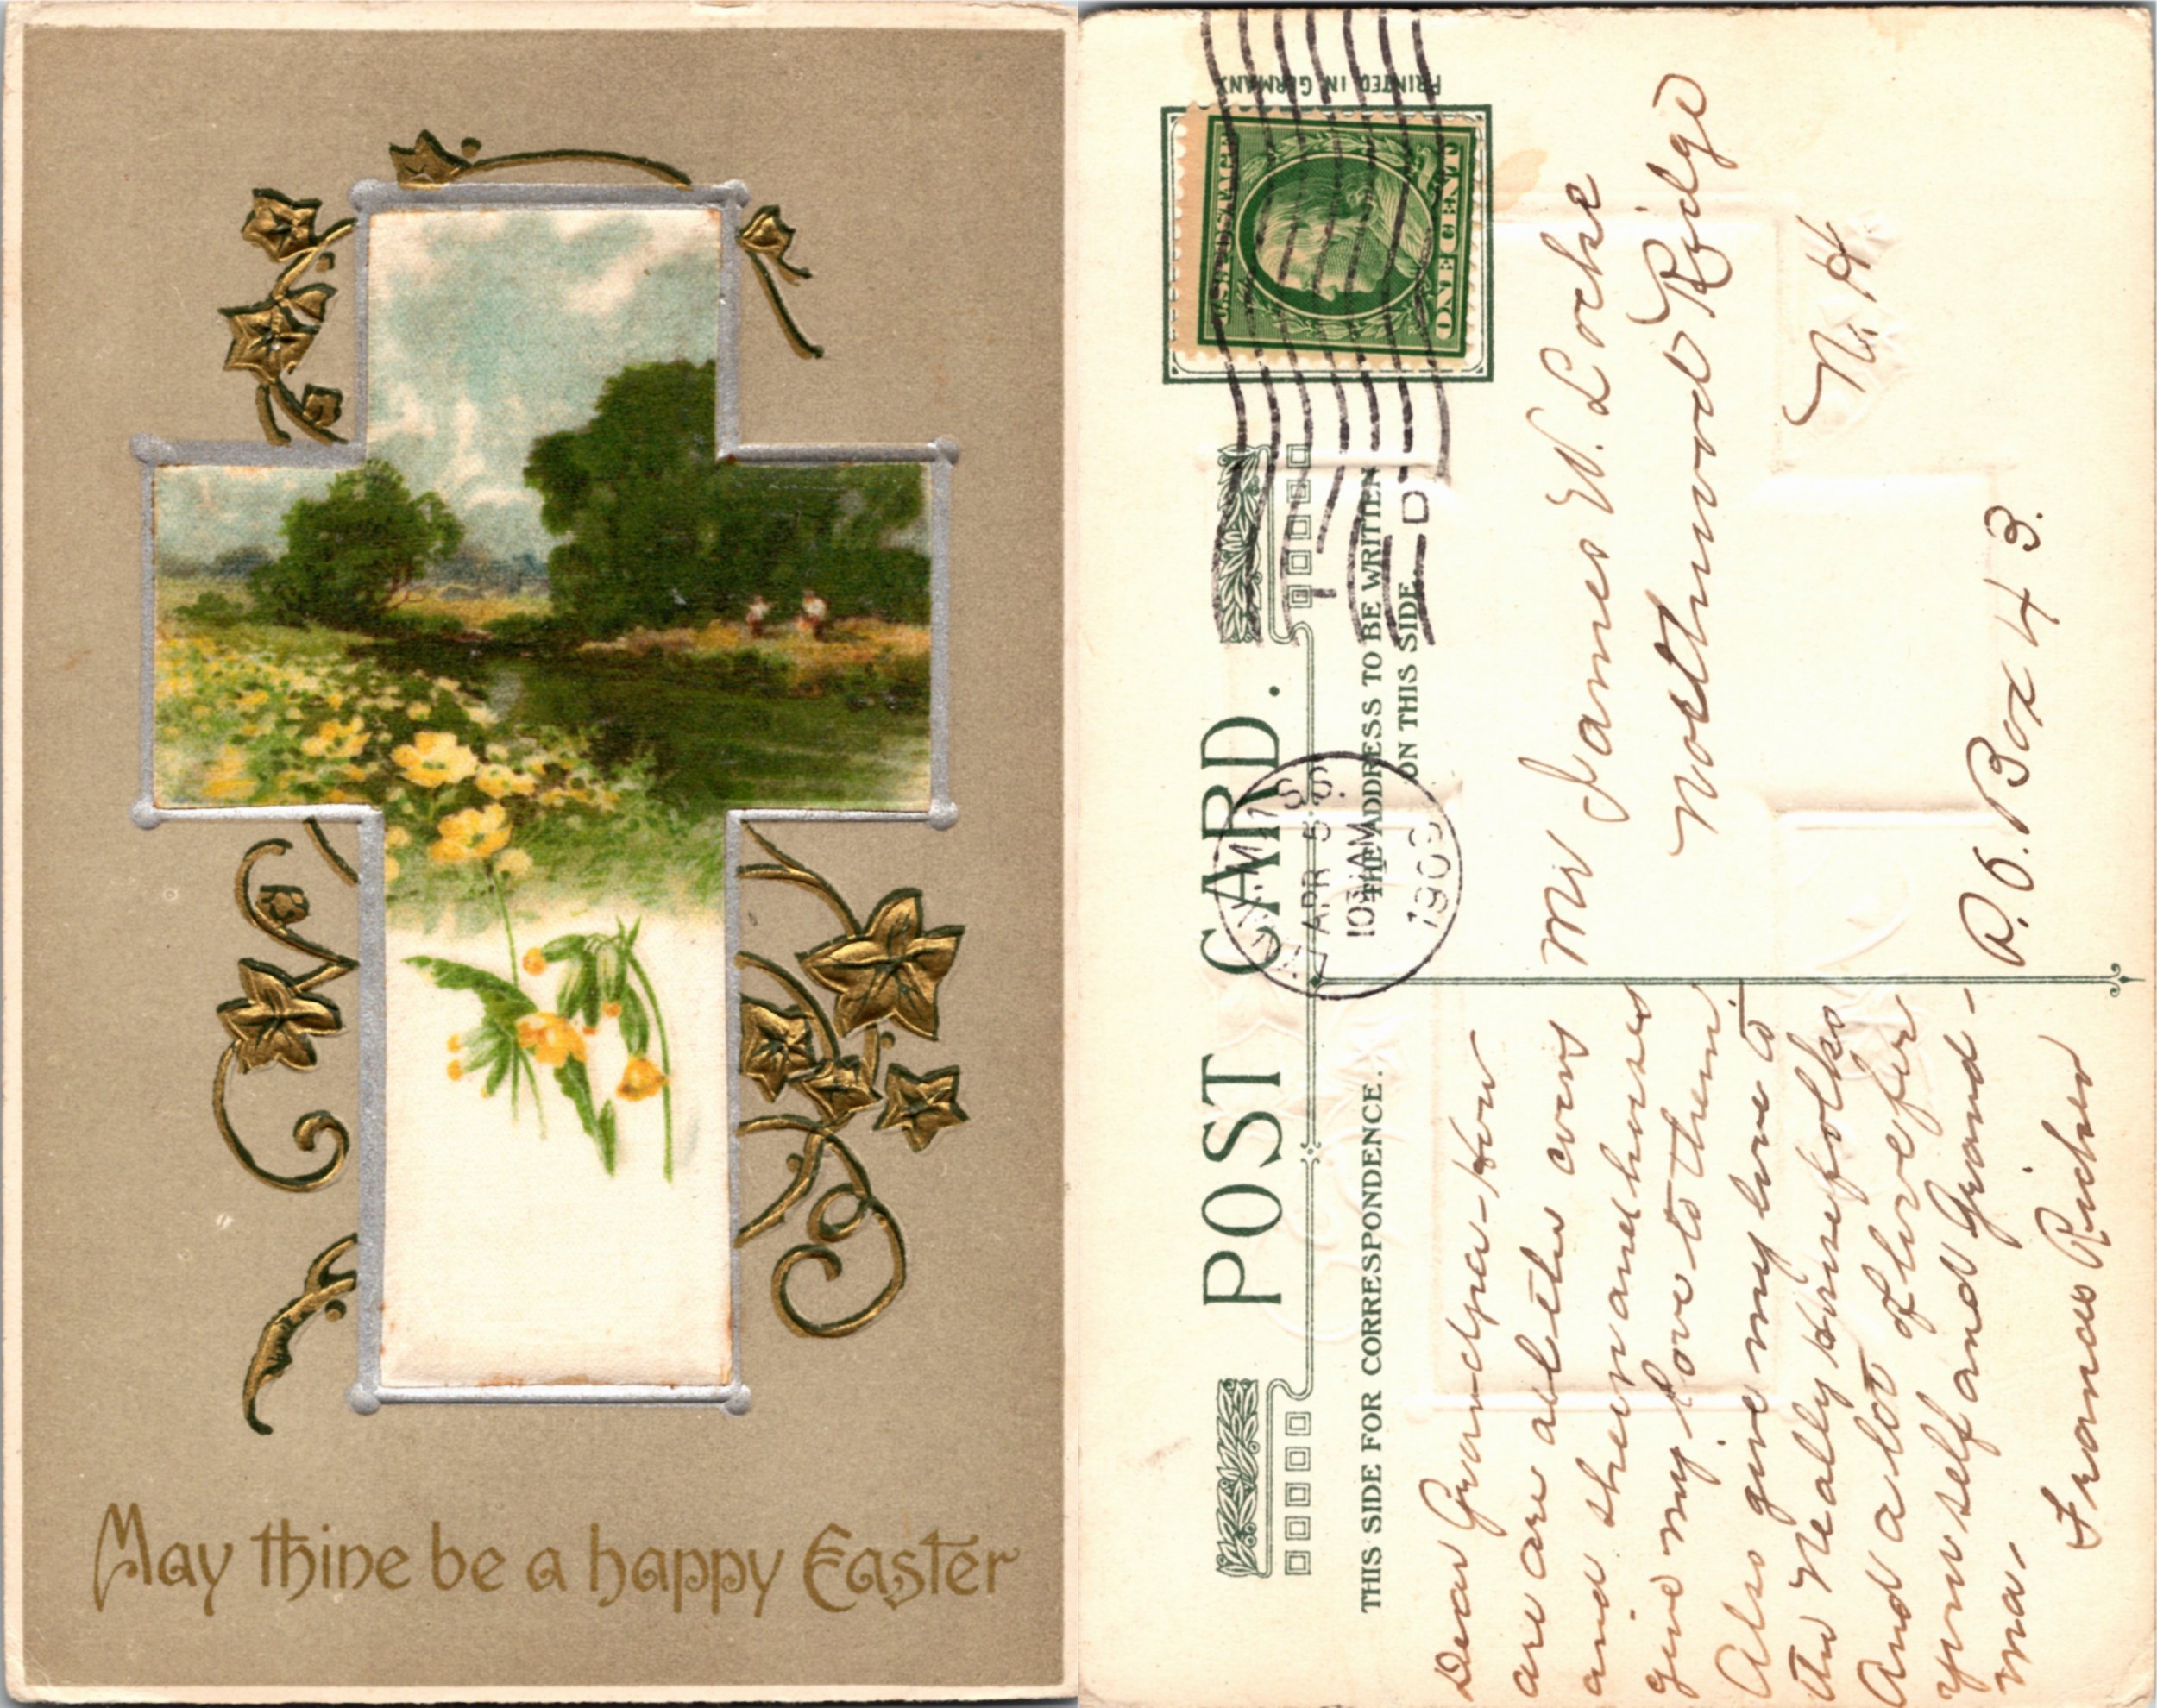 May thine be a happy Easter
PRINTED IN GERMANY
ONE CENT
POST CARD.
THIS SIDE FOR CORRESPONDENCE.
THE ADDRESS TO BE WRITTEN
ON THIS SIDE.
APR 5
10 30 AM
1909
Mr James W. Locke
Northwood Ridge
N. H
P. O. Box 43.
Dear Grandpa - How
are are all the cows
and sheep and horses
give my love to them.
Also give my love to
the Neally house folks
And a lot of love for
your self and Grand-
ma.
Frances Richer